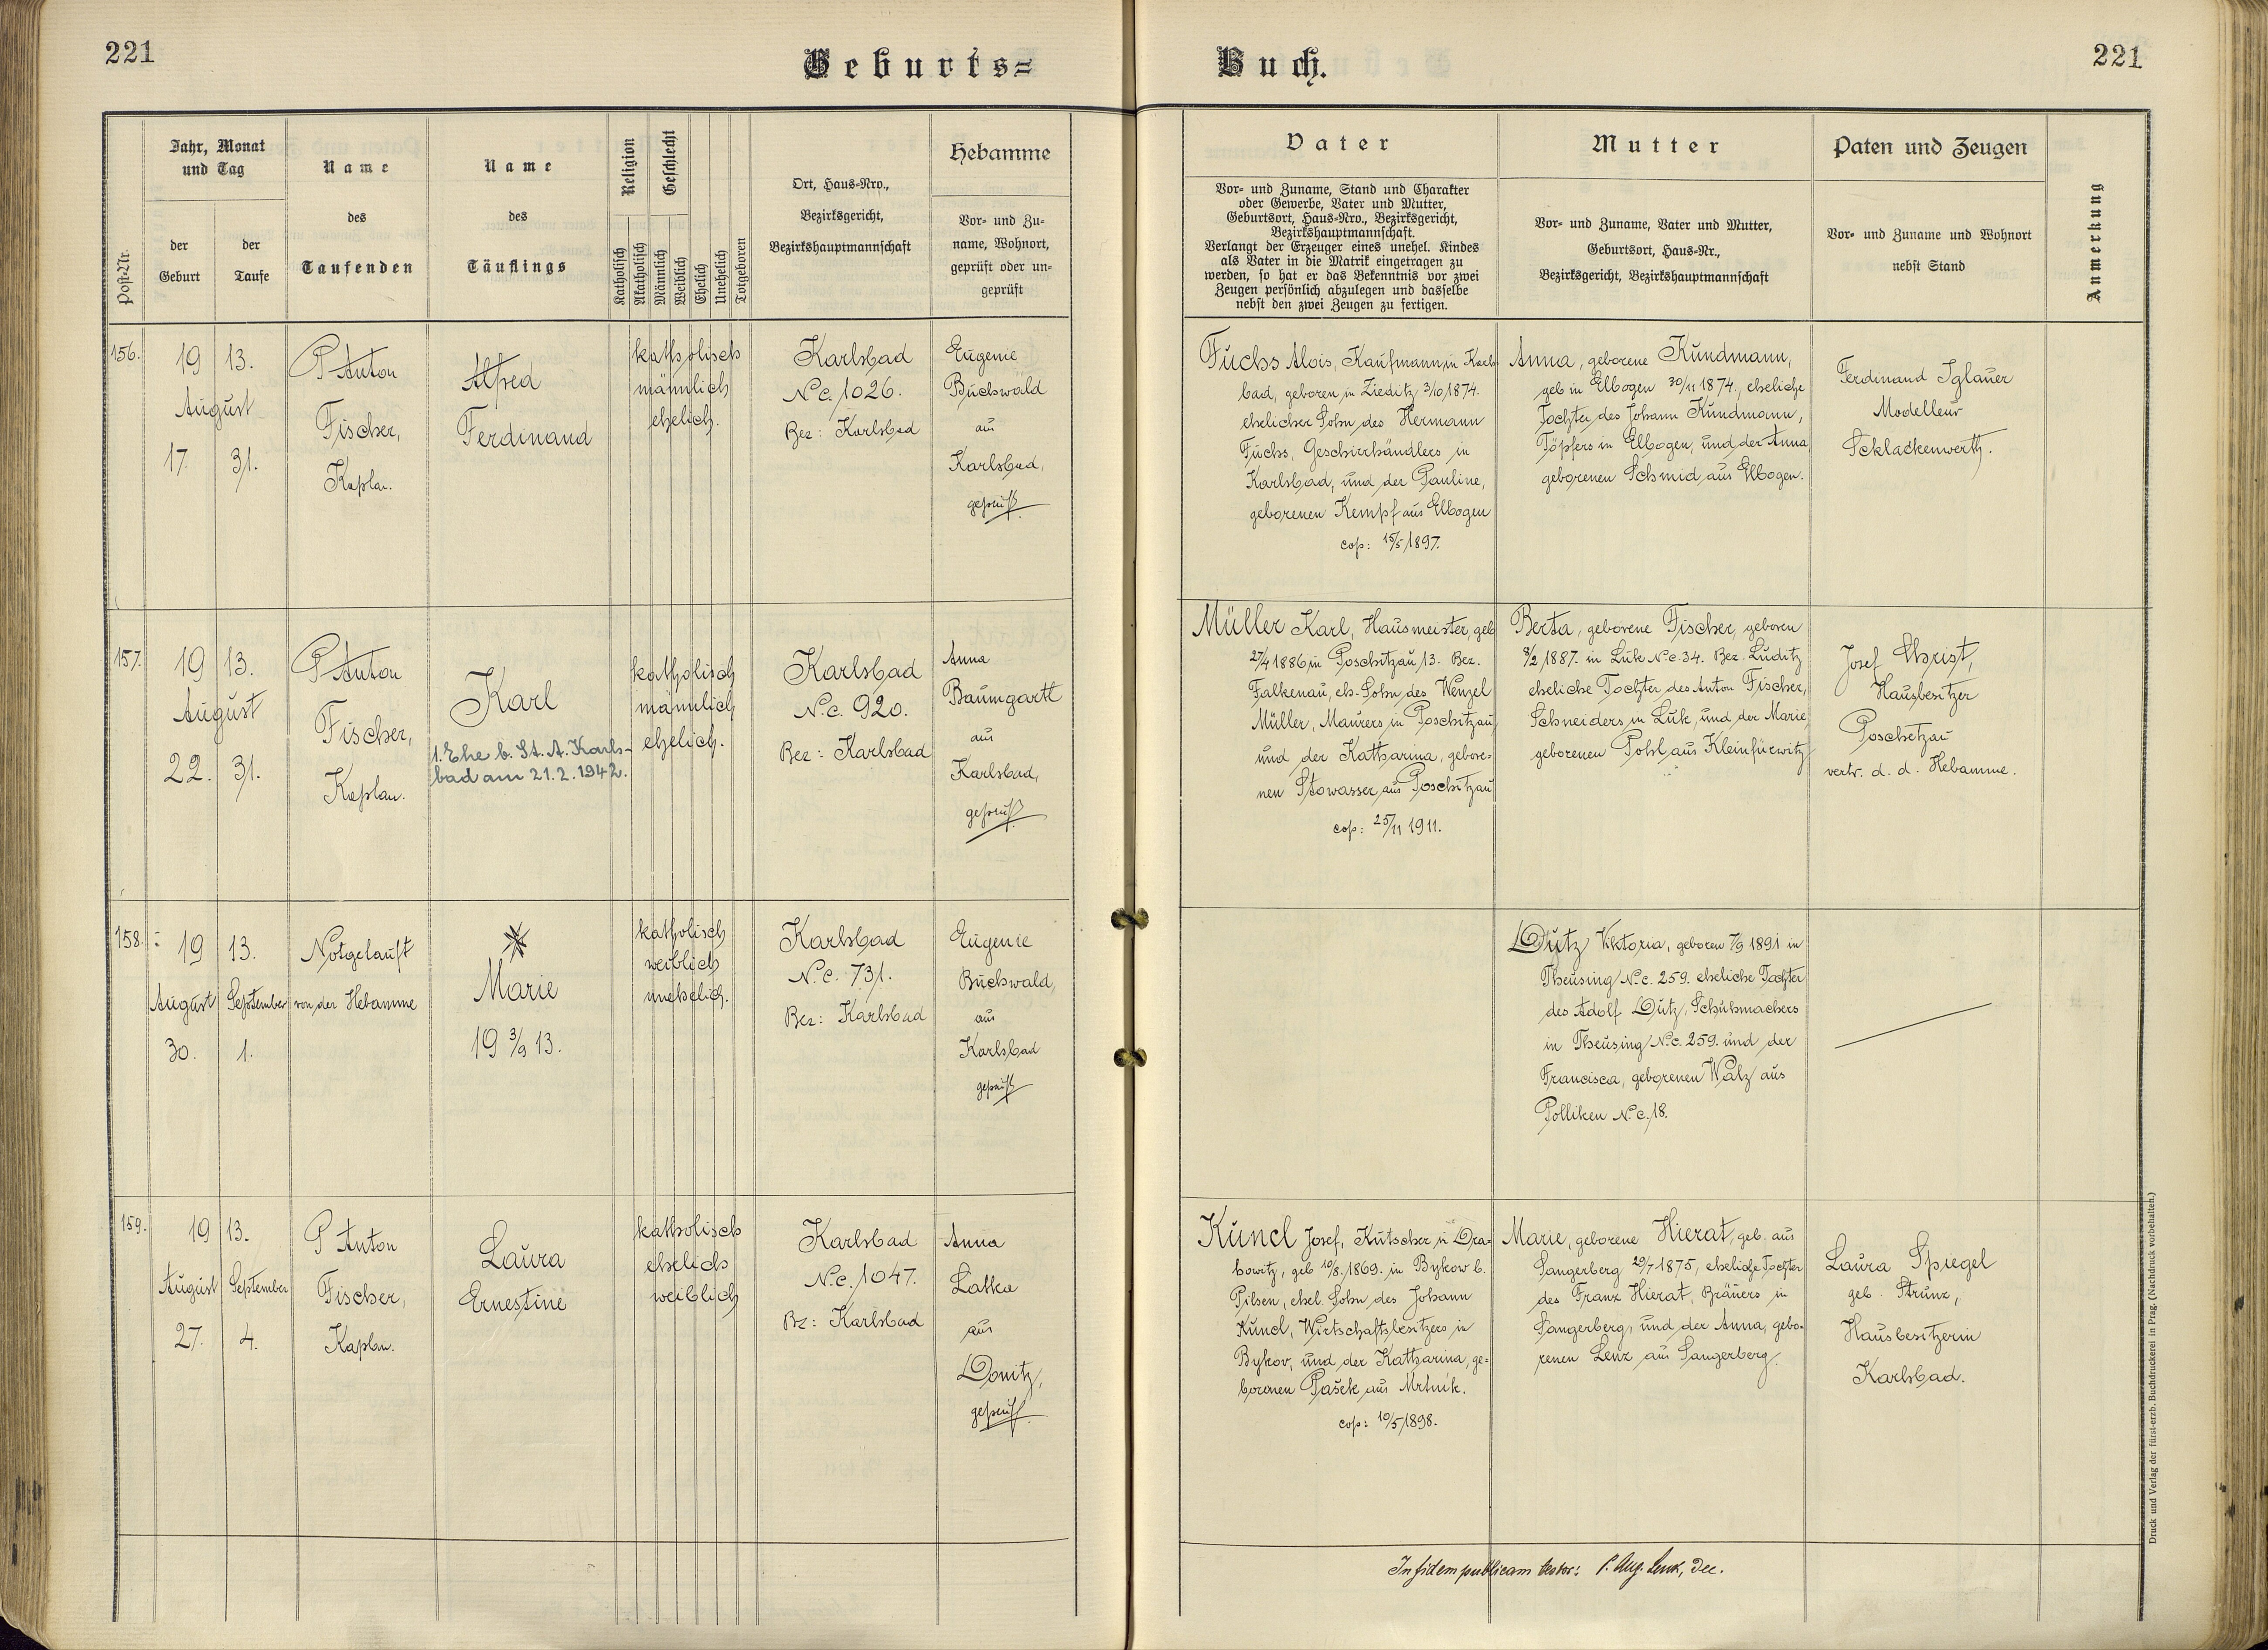 221
Geburts=
Buch.
221
Post-Nr.
Jahr, Monat
und Tag
der
Geburt
der
Taufe
Name
des
Taufenden
Name
des
Täuflings
Religion
Katholisch
Akatholisch
Geschlecht
Männlich
Weiblich
Ehelich
Unehelich
Totgeboren
Ort, Haus-Nro.,
Bezirksgericht,
Bezirkshauptmannschaft
Hebamme
Vor- und Zu-
name, Wohnort,
geprüft oder un-
geprüft
Vater
Vor- und Zuname, Stand und Charakter
oder Gewerbe, Vater und Mutter,
Geburtsort, Haus-Nro., Bezirksgericht,
Bezirkshauptmannschaft.
Verlangt der Erzeuger eines unehel. Kindes
als Vater in die Matrik eingetragen zu
werden, so hat er das Bekenntnis vor zwei
Zeugen persönlich abzulegen und dasselbe
nebst den zwei Zeugen zu fertigen.
Mutter
Vor- und Zuname, Vater und Mutter,
Geburtsort, Haus-Nr.,
Bezirksgericht, Bezirkshauptmannschaft
Paten und Zeugen
Vor- und Zuname und Wohnort
nebst Stand
Anmerkung
156.
19 13.
August
17. 31.
P Anton
Fischer,
Kaplan.
Alfred
Ferdinand
katholisch
männlich
ehelich.
Karlsbad
Nc. 1026.
Bez: Karlsbad
Eugenie
Buchswald
aus
Karlsbad,
geprüft
Fuchs Alois, Kaufmann, in Karls-
bad, geboren in Zieditz 3/10 1874.
ehelicher Sohn des Hermann
Fuchs, Geschirrhändlers in
Karlsbad, und der Pauline,
geborenen Kempf aus Elbogen
cop: 15/5 1897.
Anna, geborene Kundmann,
geb in Elbogen 30/11 1874., eheliche
Tochter des Johann Kundmann,
Töpfers in Elbogen, und der Anna
geborenen Schmid aus Elbogen.
Ferdinand Iglauer
Modelleur
Schlackenwerth.
157.
19 13.
August
22. 31.
P Anton
Fischer,
Kaplan.
Karl
1. Ehe b. St. A. Karls-
bad am 21.2.1942.
katholisch
männlich
ehelich.
Karlsbad
N.c. 920.
Bez: Karlsbad
Anna
Baumgartl
aus
Karlsbad,
geprüft
Müller Karl, Hausmeister, geb
27/4 1886 in Poschitzau, 13. Bez.
Falkenau, eh. Sohn des Wenzel
Müller, Maurers in Poschitzau,
und der Katharina, gebore-
nen Stowasser aus Poschitzau
cop: 25/11 1911.
Berta, geborene Fischer, geboren
8/2 1887. in Luk N.c. 34. Bez. Luditz
eheliche Tochter des Anton Fischer,
Schneiders in Luk, und der Marie,
geborenen Pohl aus Kleinfürwitz
Josef Christ,
Hausbesitzer
Poschetzau
vertr. d. d. Hebamme.
158.
19 13.
August September
30. 1.
Notgetauft
von der Hebamme
Marie
19 3/9 13.
katholisch
weiblich
unehelich.
Karlsbad
N.c. 731.
Bez: Karlsbad
Eugenie
Buchswald,
aus
Karlsbad
geprüft
Dutz Viktoria, geboren 7/9 1891 in
Theusing N.c. 259. eheliche Tochter
des Adolf Dutz, Schuhmachers
in Theusing N.c. 259. und der
Francisca, geborenen Walz aus
Polliken N.c. 18.
159.
19 13.
August September
27. 4.
P Anton
Fischer,
Kaplan.
Laura
Ernestine
katholisch
ehelich
weiblich
Karlsbad
N.c. 1047.
Bz: Karlsbad
Anna
Latka
aus
Donitz,
geprüft
Kuncl Josef, Kutscher in Dra-
howitz, geb 10/8. 1869. in Bykow b.
Pilsen, ehel. Sohn des Johann
Kuncl, Wirtschaftsbesitzers in
Bykov, und der Katharina, ge-
borenen Pašek aus Mrtnik.
cop: 10/5 1898.
Marie, geborene Hierat, geb. aus
Sangerberg 29/7 1875, eheliche Tochter
des Franz Hierat, Bräuers in
Sangerberg, und der Anna, gebo-
renen Lenz aus Sangerberg.
Laura Spiegel
geb. Strunz,
Hausbesitzerin
Karlsbad.
In fidem publicam testor: P. Aug. Lenk, Dec.
Druck und Verlag der fürst-erzb. Buchdruckerei in Prag. (Nachdruck vorbehalten.)